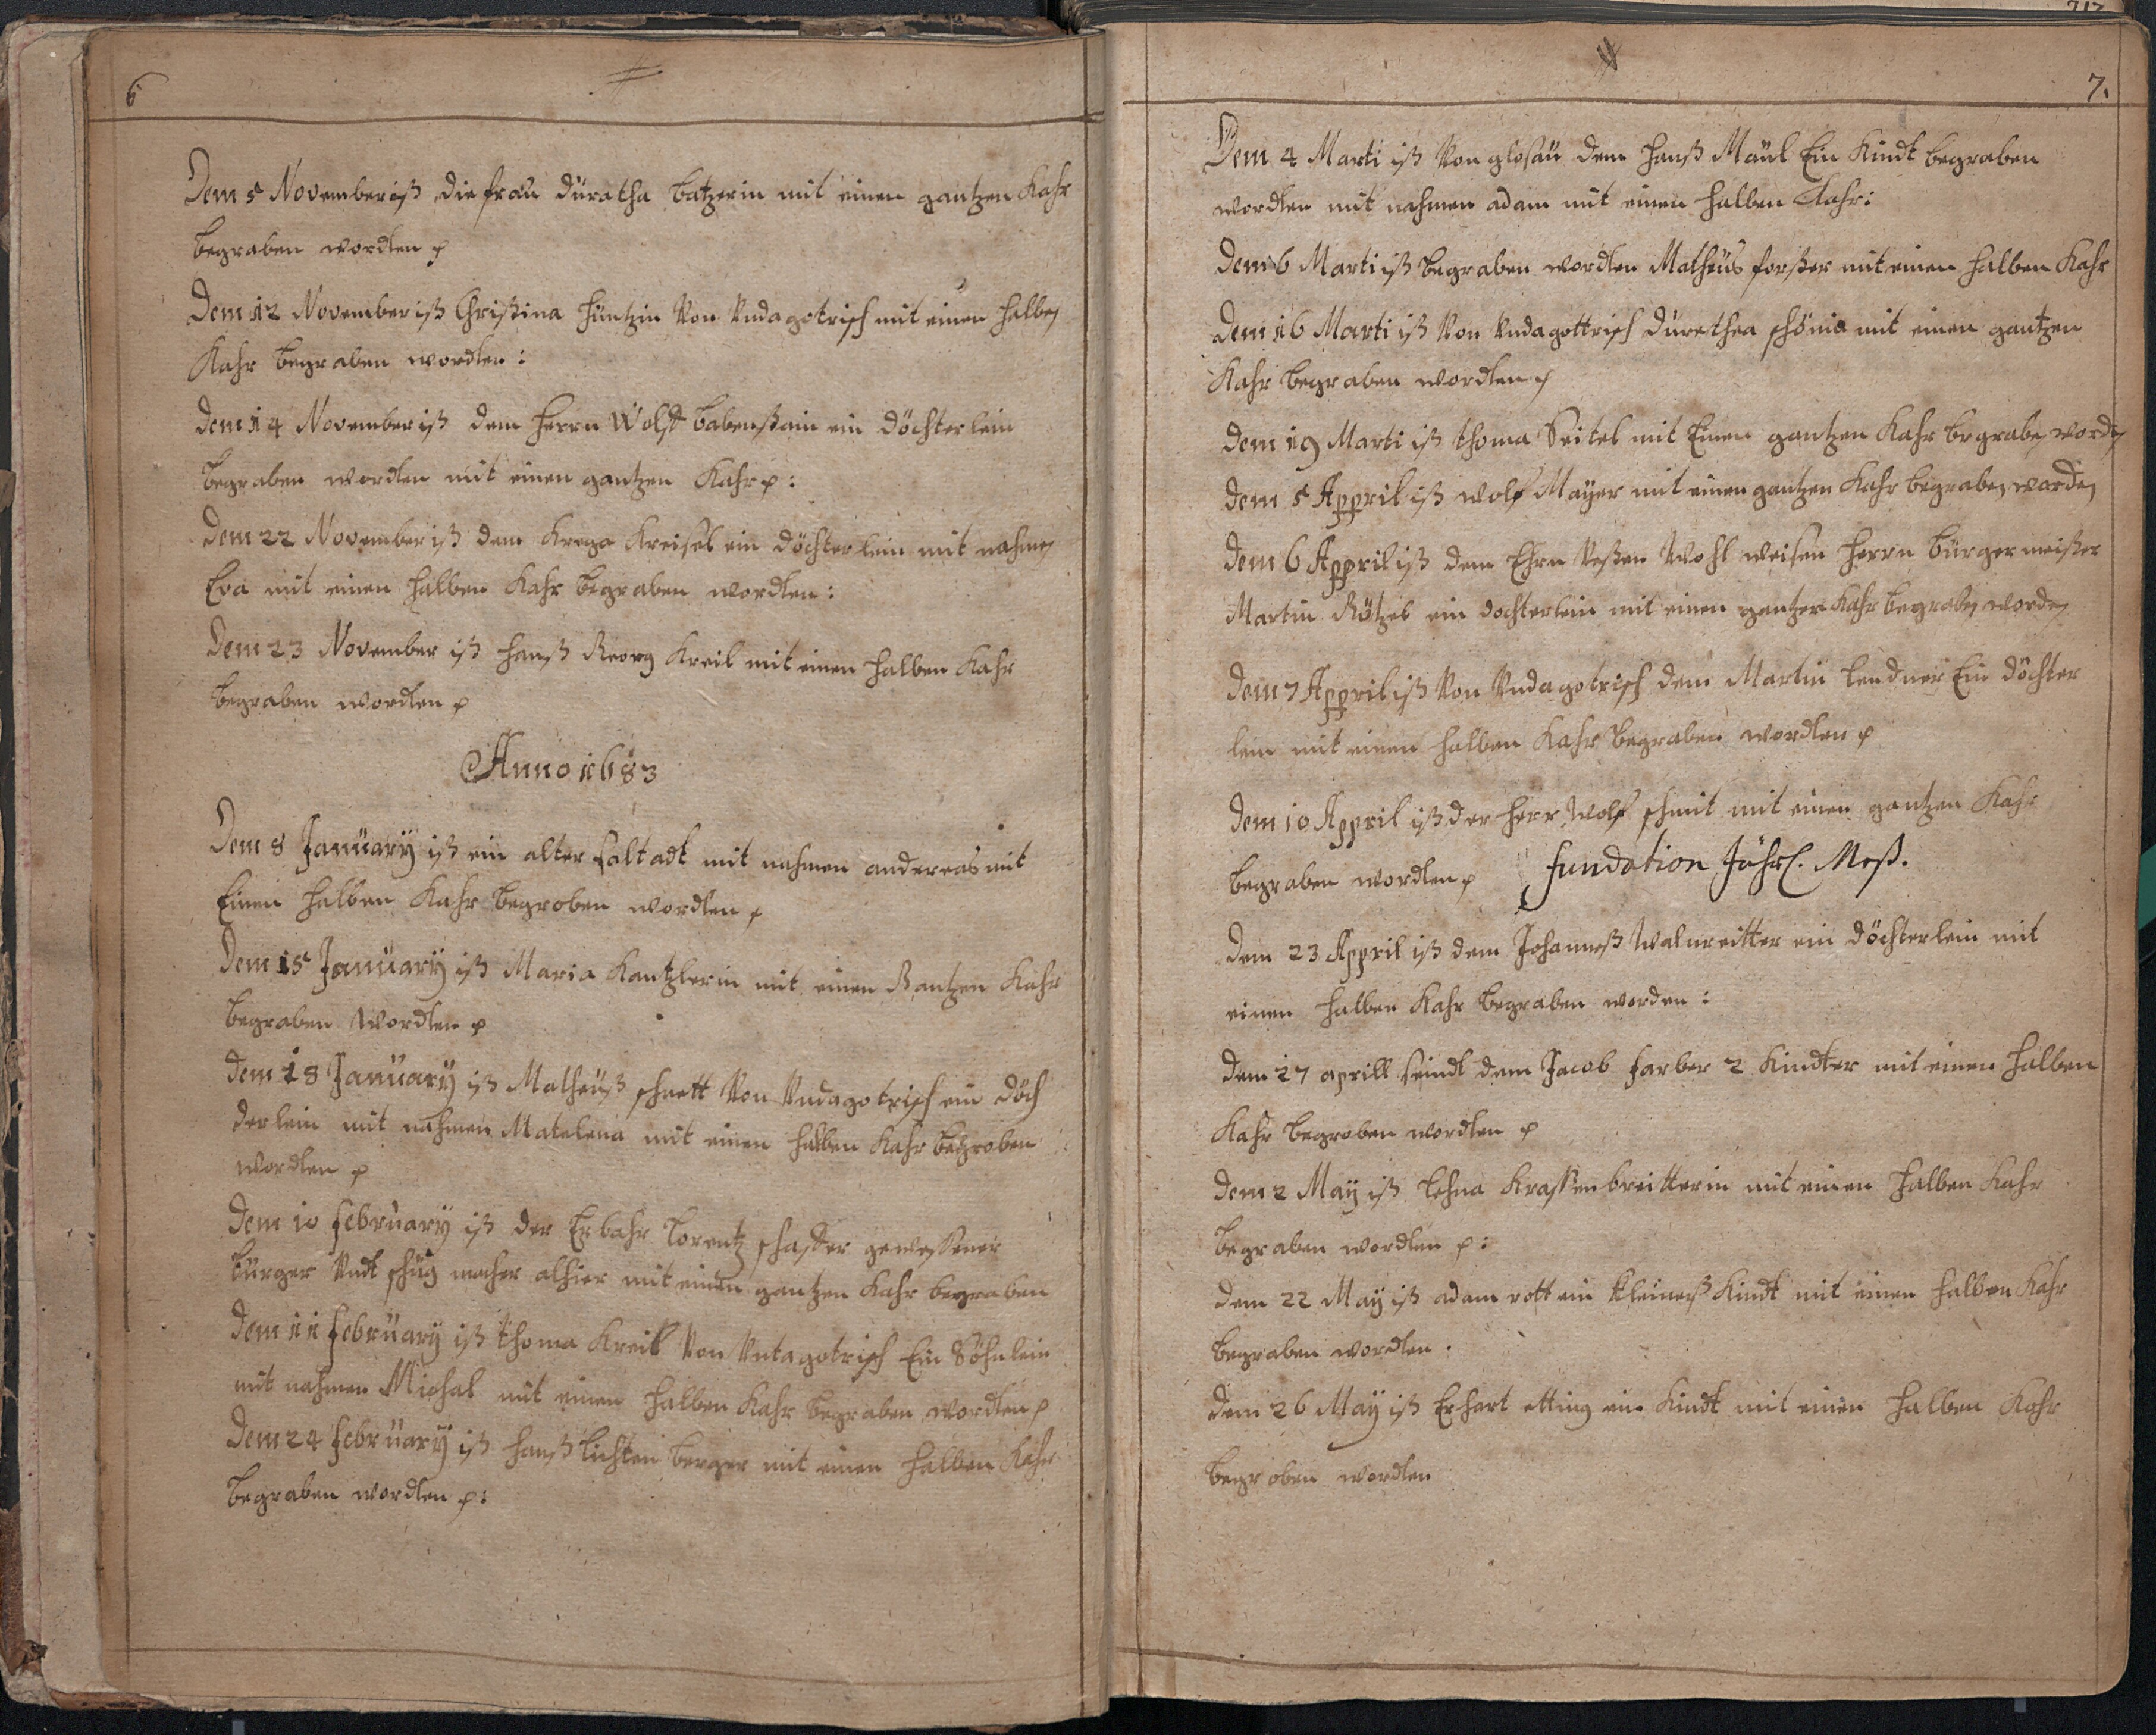 6
Dem 5 November iß die frau düratha batzerin mit einen gantzen Kahr
begraben wordten
Dem 12 November iß Christina Hüntzin Von Vndagotrisch mit einen halben
Kahr begraben wordten :
Dem 14 November iß dem Herrn Wolff babenstain ein döchterlein
begraben wordten mit einen gantzen Kahr :
Dem 22 November iß dem Krega Kreisel ein döchterlein mit nahmen
Eva mit einen halben Kahr begraben wordten :
Dem 23 November iß Hanß Reorg Kreil mit einen halben Kahr
begraben wordten
Anno 1683
Dem 8 January iß ein alter saltadt mit nahmen andereas mit
Einen halben Kahr begroben wordten
Dem 15 January iß Maria Kantzlerin mit einen Gantzen Kahr
begraben wordten
Dem 18 January iß Matheüß schnett Von Vndagotrisch ein döch
derlein mit nahmen Matelena mit einen halben Kahr begroben
wordten
Dem 10 february iß der Erbahr Lorentz schaffer gewessener
bürger Vndt schug macher alhier mit einen gantzen Kahr begraben
Dem 11 february iß thoma Kreil Von Vntagotrisch Ein Söhnlein
mit nahmen Michal mit einen halben Kahr begraben wordten
Dem 24 february iß Hanß lichten berger mit einen halben Kahr
begraben wordten :
7.
Dem 4 Marti iß Von glosaü dem Hanß Mäül Ein Kindt begraben
wordten mit nahmen adam mit einen halben Kahr :
Dem 6 Marti iß begraben wordten Matheüs forster mit einen halben Kahr
Dem 16 Marti iß Von Vndagottrisch dürethea schönie mit einen gantzen
Kahr begraben wordten
Dem 19 Marti iß thoma Seitel mit Einen gantzen Kahr begraben worden
Dem 5 Appril iß wolf Mayer mit einen gantzen Kahr begraben worden
Dem 6 Appril iß dem Ehrn Vesten Wohl weisen Herrn bürgermeister
Martin Rötzel ein dochterlein mit einen gantzen Kahr begraben worden
Dem 7 Appril iß Von Vndagotrisch dem Martin lendner Ein döchter
lein mit einen halben Kahr begraben wordten
Dem 10 Appril iß der Herr Wolf schmit mit einen gantzen Kahr
begraben wordten fundation Jährl. Meß.
Dem 23 Appril iß dem Johanneß Walnreitter ein döchterlein mit
einen halben Kahr begraben worden :
Dem 27 aprill seindt dem Jacob farber 2 Kindter mit einen halben
Kahr begroben wordten
Dem 2 May iß lehna Krassenbreitterin mit einen halben Kahr
begraben wordten :
Dem 22 May iß adam rott ein kleineß Kindt mit einen halben Kahr
begraben wordten .
Dem 26 May iß Erhart etting ein Kindt mit einen halben Kahr
begroben wordten